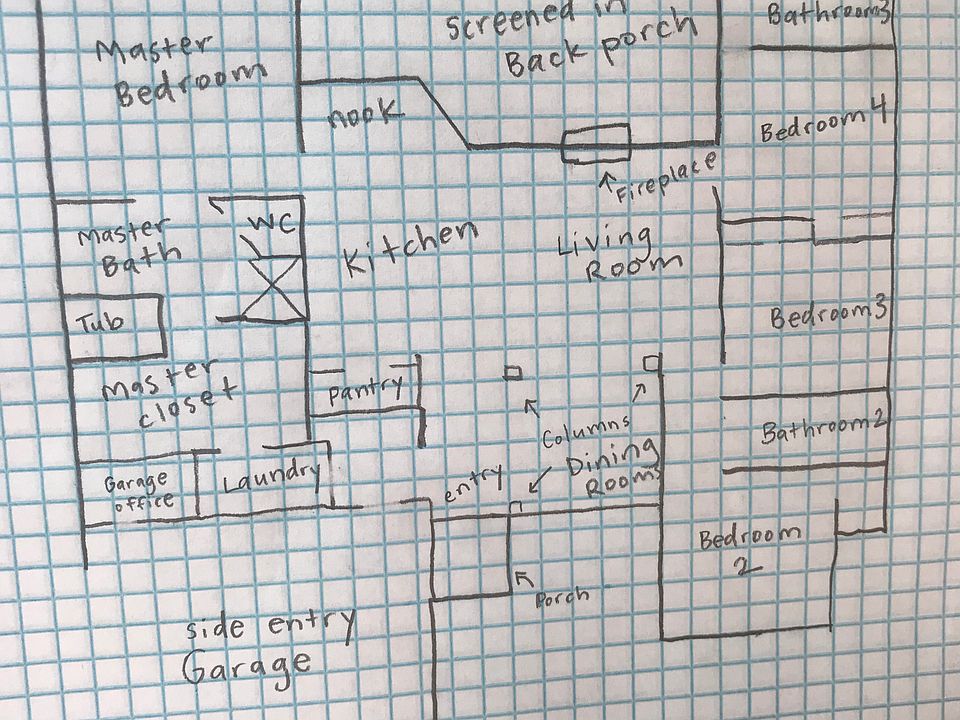 Master
Bedroom
Screened in
Back porch
Bathroom3
nook
Bedroom 4
Fireplace
WC
Master
Bath
Kitchen
Living
Room
Tub
Bedroom3
Master
closet
Pantry
Columns
Bathroom2
Garage
office
Laundry
entry
Dining
Room
Bedroom
2
Porch
side entry
Garage